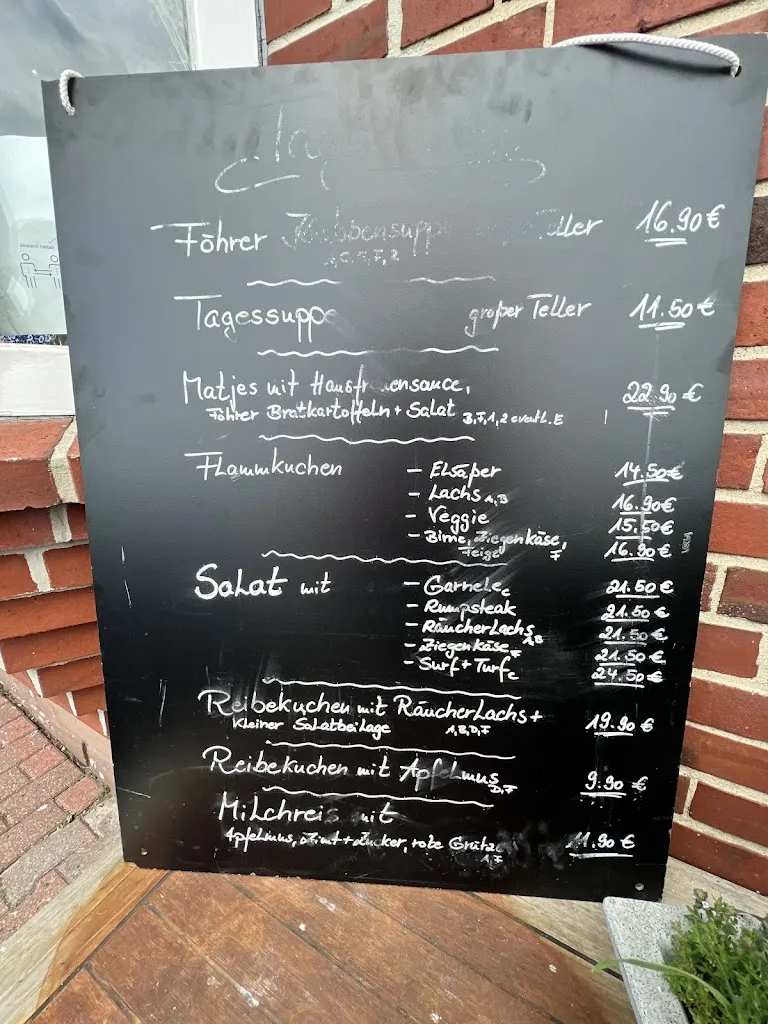 Föhrer Krabbensuppe Teller 16.90€
Tagessuppe großer Teller 11.50€
Matjes mit Hausfrauensauce, 22.90€
Föhrer Bratkartoffeln + Salat B,F,1,2 eventl. E
Flammkuchen – Elsäßer 14.50€
– Lachs 1,B 16.90€
– Veggie 15.50€
– Birne, Ziegenkäse, 16.90€
Feige F
Salat mit – Garnele C 21.50€
– Rumpsteak 21.50€
– Räucherlachs 1,B 21.50€
– Ziegenkäse F 21.50€
– Surf + Turf C 24.50€
Reibekuchen mit Räucherlachs + 19.90€
kleiner Salatbeilage 1,B,D,F
Reibekuchen mit Apfelmus D,F 9.90€
Milchreis mit
Apfelmus, Zimt + Zucker, rote Grütze 11.90€
1,F